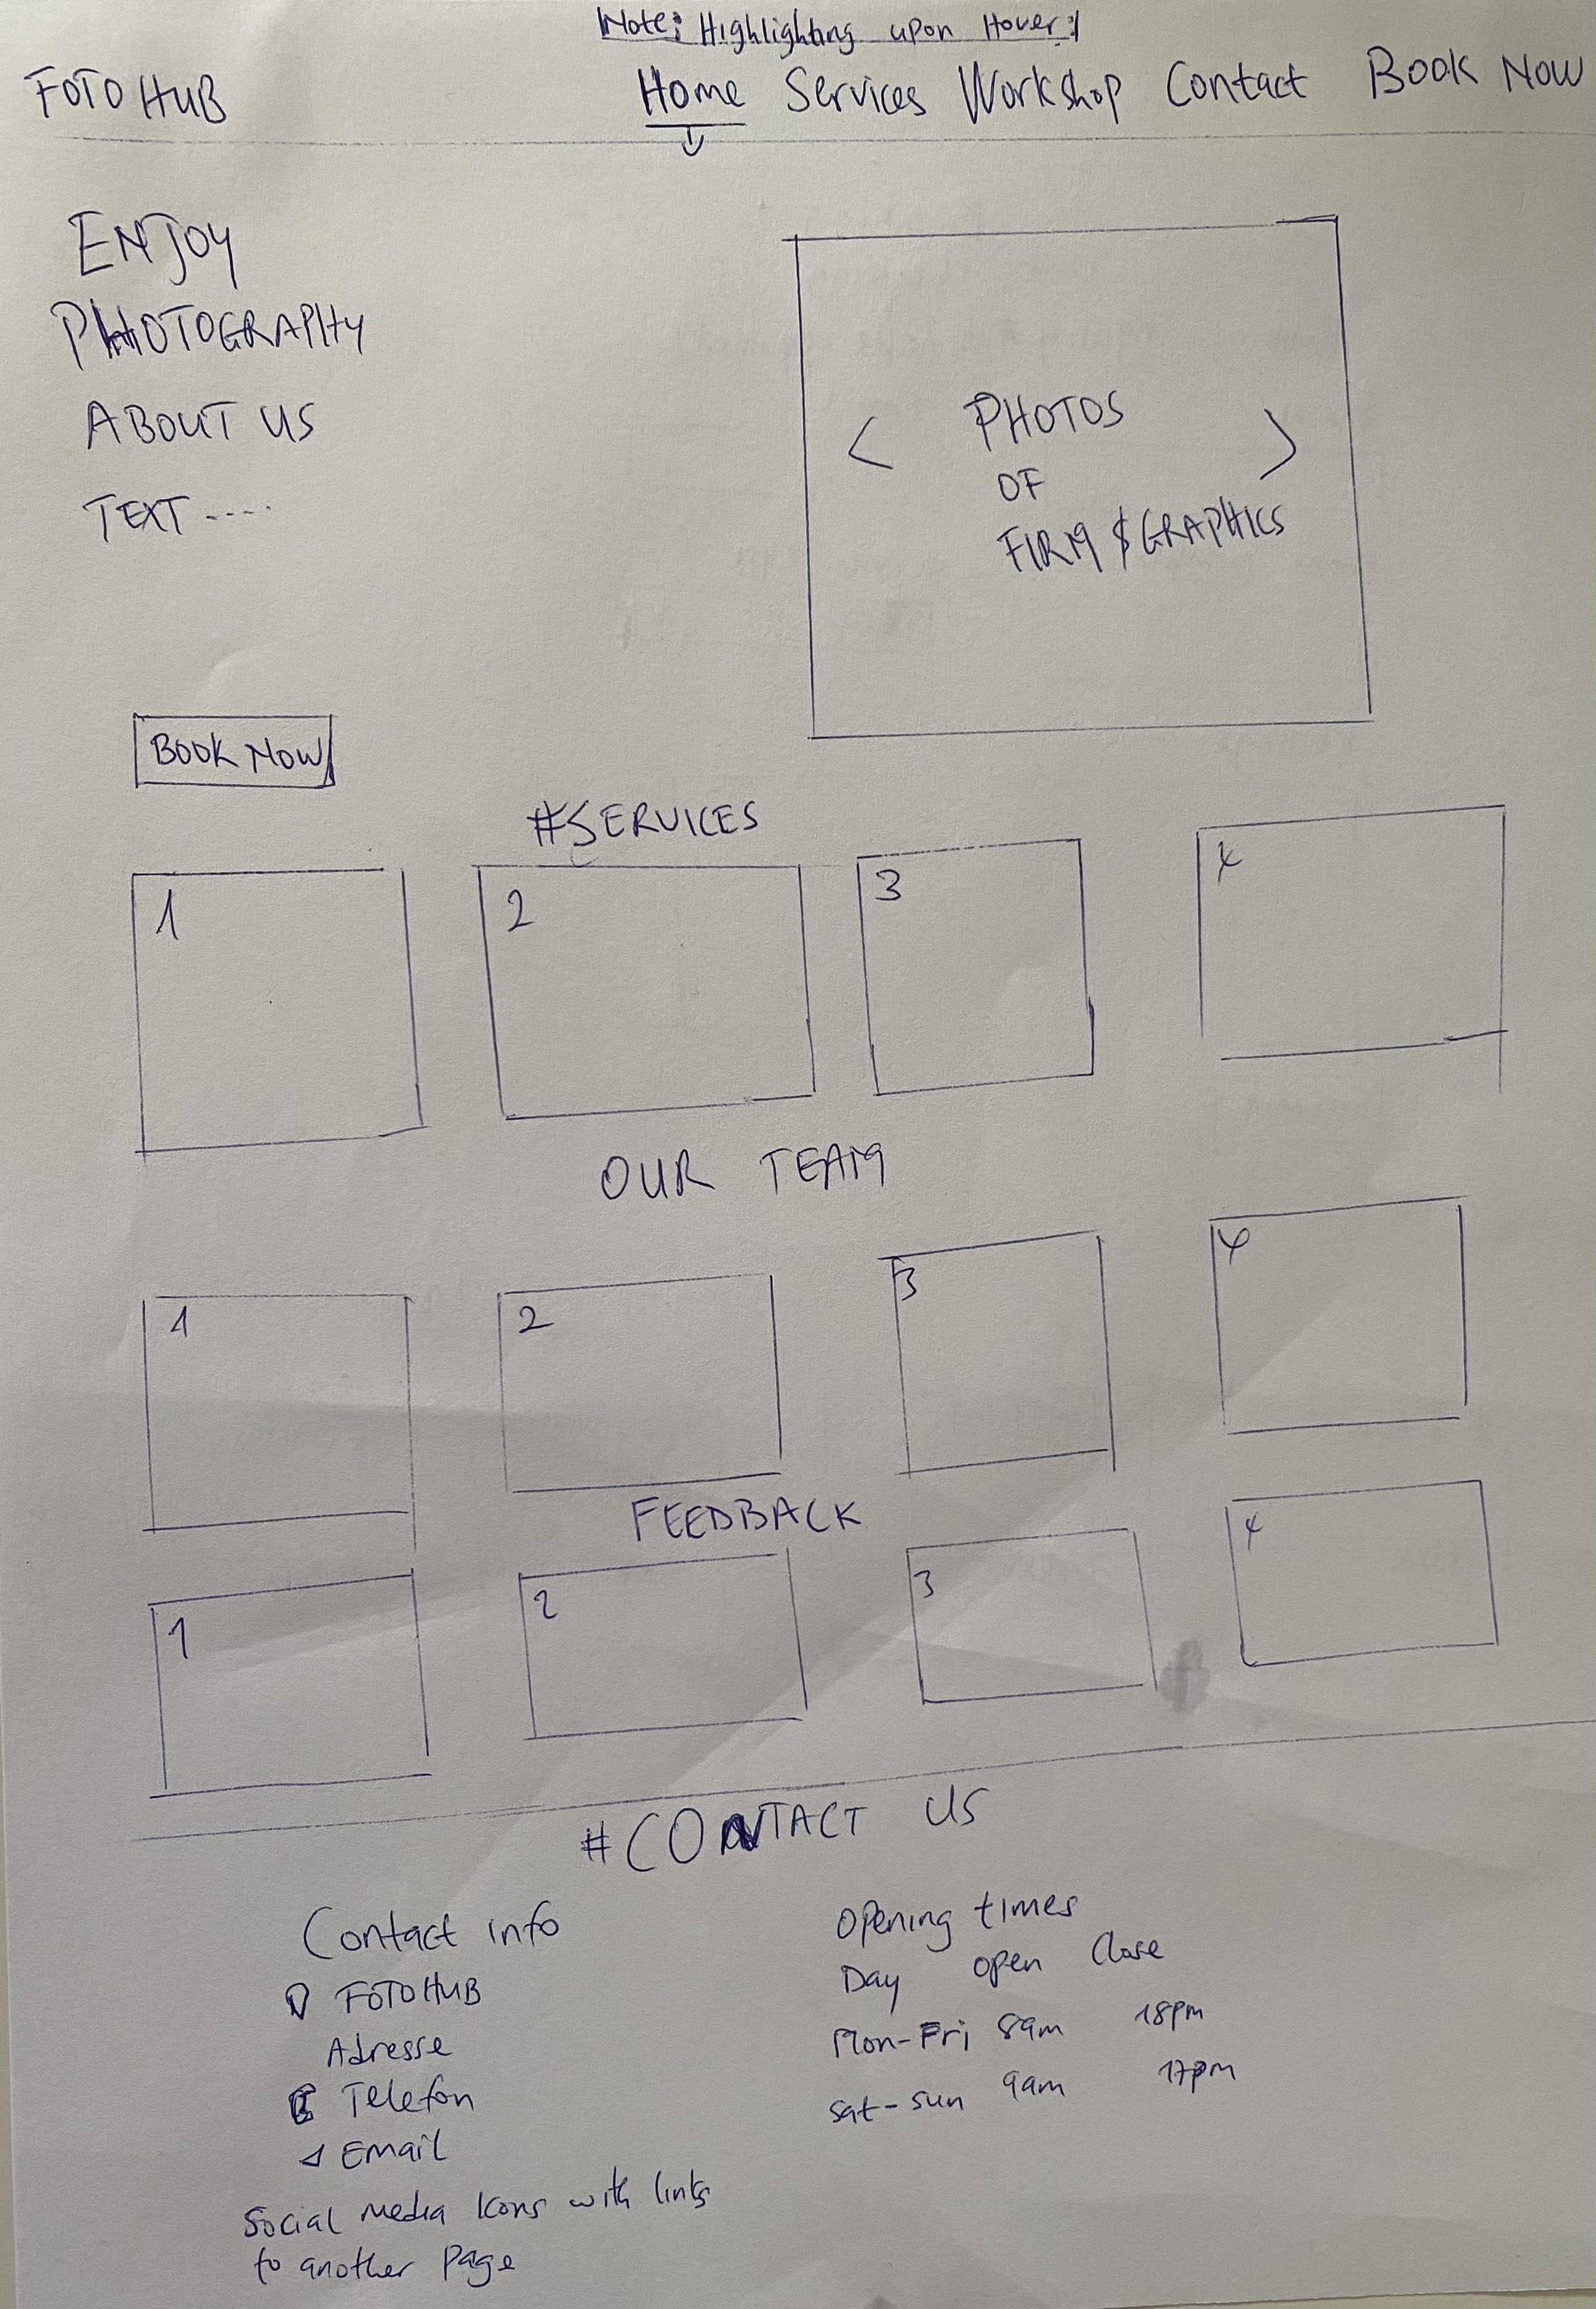 Note: Highlighting upon Hover!
FOTO HUB
Home Services Workshop Contact Book Now
ENJOY
PHOTOGRAPHY
ABOUT US
TEXT -----
< PHOTOS >
OF
FIRM & GRAPHICS
BOOK NOW
#SERVICES
1 2 3 4
OUR TEAM
1 2 3 4
FEEDBACK
1 2 3 4
#CONTACT US
Contact info
FOTOHUB
Adresse
Telefon
Email
Social Media Icons with links
to another Page
Opening times
Day open Close
Mon-Fri 8am 18pm
Sat-sun 9am 17pm